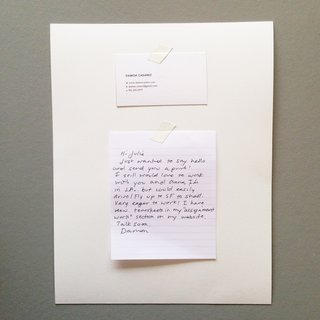 DAMON CASAREZ
Hi Julie
Just wanted to say hello
and send you a print!
I still would love to work
with you and Dana, I'm
in LA, but could easily
drive/fly up to SF to shoot.
Very eager to work! I have
new tearsheets in my "assignment
work" section on my website.
Talk soon
Damon